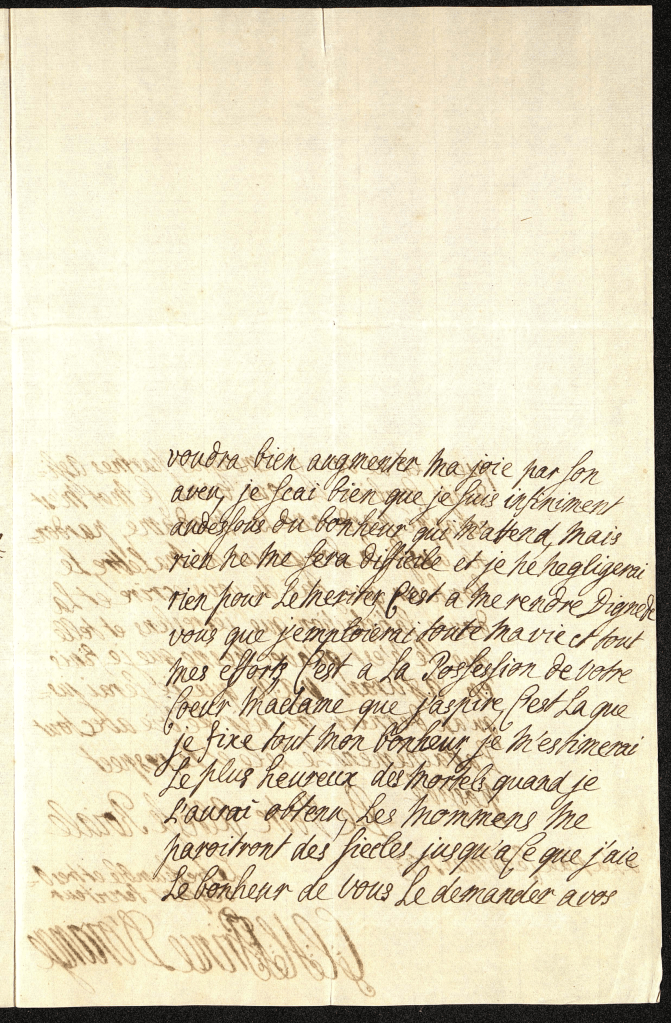 voudra bien augmenter ma joie par son
aveu, je scai bien que je suis infiniment
audessous du bonheur qui m'attend, mais
rien ne me sera difficile et je ne negligerai
rien pour Le meriter, C'est a me rendre Digne de
vous que j'emploierai toute ma vie et tout
mes efforts, C'est a La Possession de votre
Coeur Madame que j'aspire, C'est La que
je fixe tout mon bonheur, je m'estimerai
Le plus heureux des mortels quand je
L'aurai obtenu, Les mommens me
paroitront des siecles jusqu'a Ce que j'aie
Le bonheur de vous Le demander a vos